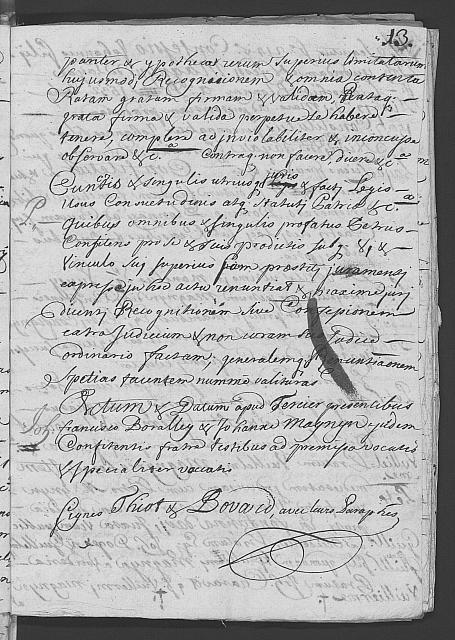 13.
ypothecar rerum superius limitatarum
hujusmodi Recognasionem omnia contenta
Ratam gratam firmam & validam, Rataq;
grata firma & valida perpetue habere
tenere, complere ad inviolabiliter & inconcusse
observare & c.a Contraq; non facere, dicere & c.a
Cunctis & singulis utriusq; juris & facti Legi–
Consuetudinis atq; Statuti Patrie & c.a
Quibus omnibus & singulis prefatus Petrus
Confitens pro se & suis predictis subq; &
Vinculo sui superius jam prestiti juramenti
expresse in hoc actu renuntiat & maxime juri
dicenti Recognitionem sive Confessionem
extra Judicium & non coram suo Judice
ordinario factam; generalemq; Renuntiationem
Spetias facentem numme valituras
Actum & Datum apud Tercier presentibus
francisco Doralley & Johanne Magnyn ejusdem
Confitentis fratre testibus ad premissa vocatis
& specialiter vocatis
Signes Thiot & Bovard, avec leurs Paraphes